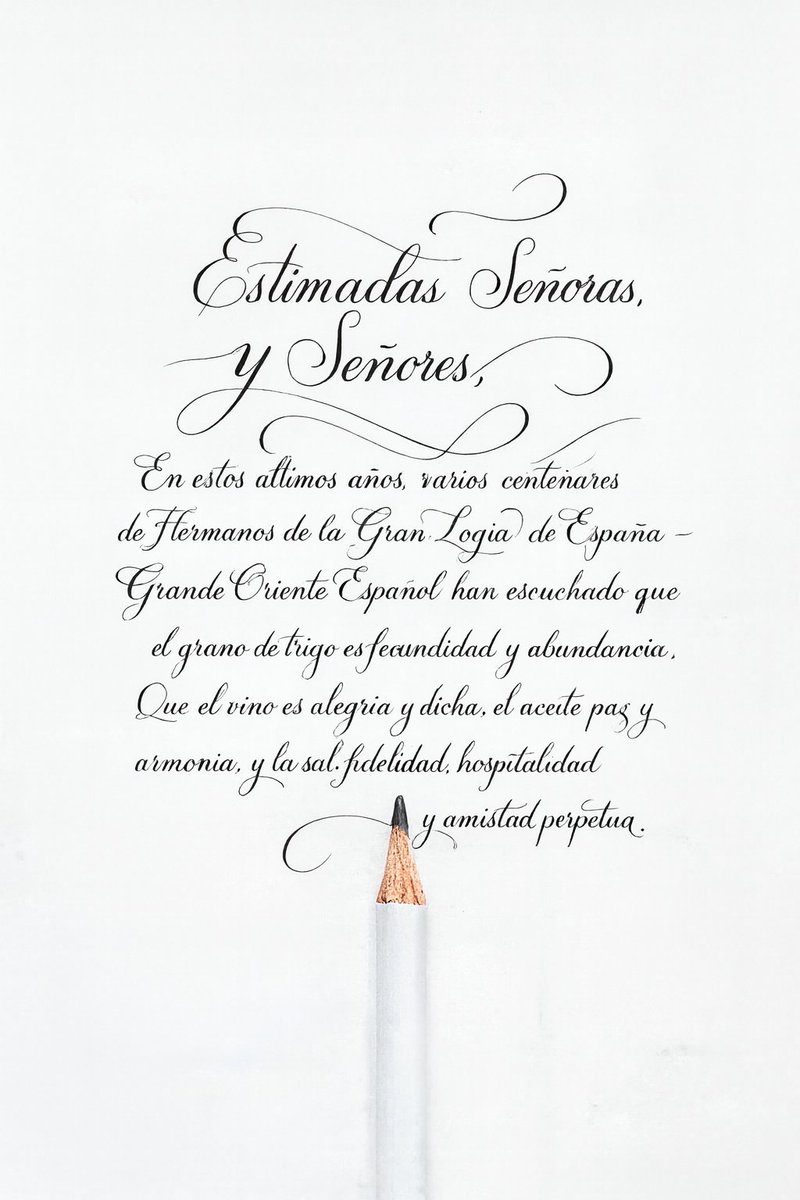 Estimadas Señoras,
y Señores,
En estos altimos años, varios centenares
de Hermanos de la Gran Logia de España –
Grande Oriente Español han escuchado que
el grano de trigo es fecundidad y abundancia,
Que el vino es alegria y dicha, el aceite paz y
armonia, y la sal. fidelidad, hospitalidad
y amistad perpetua.